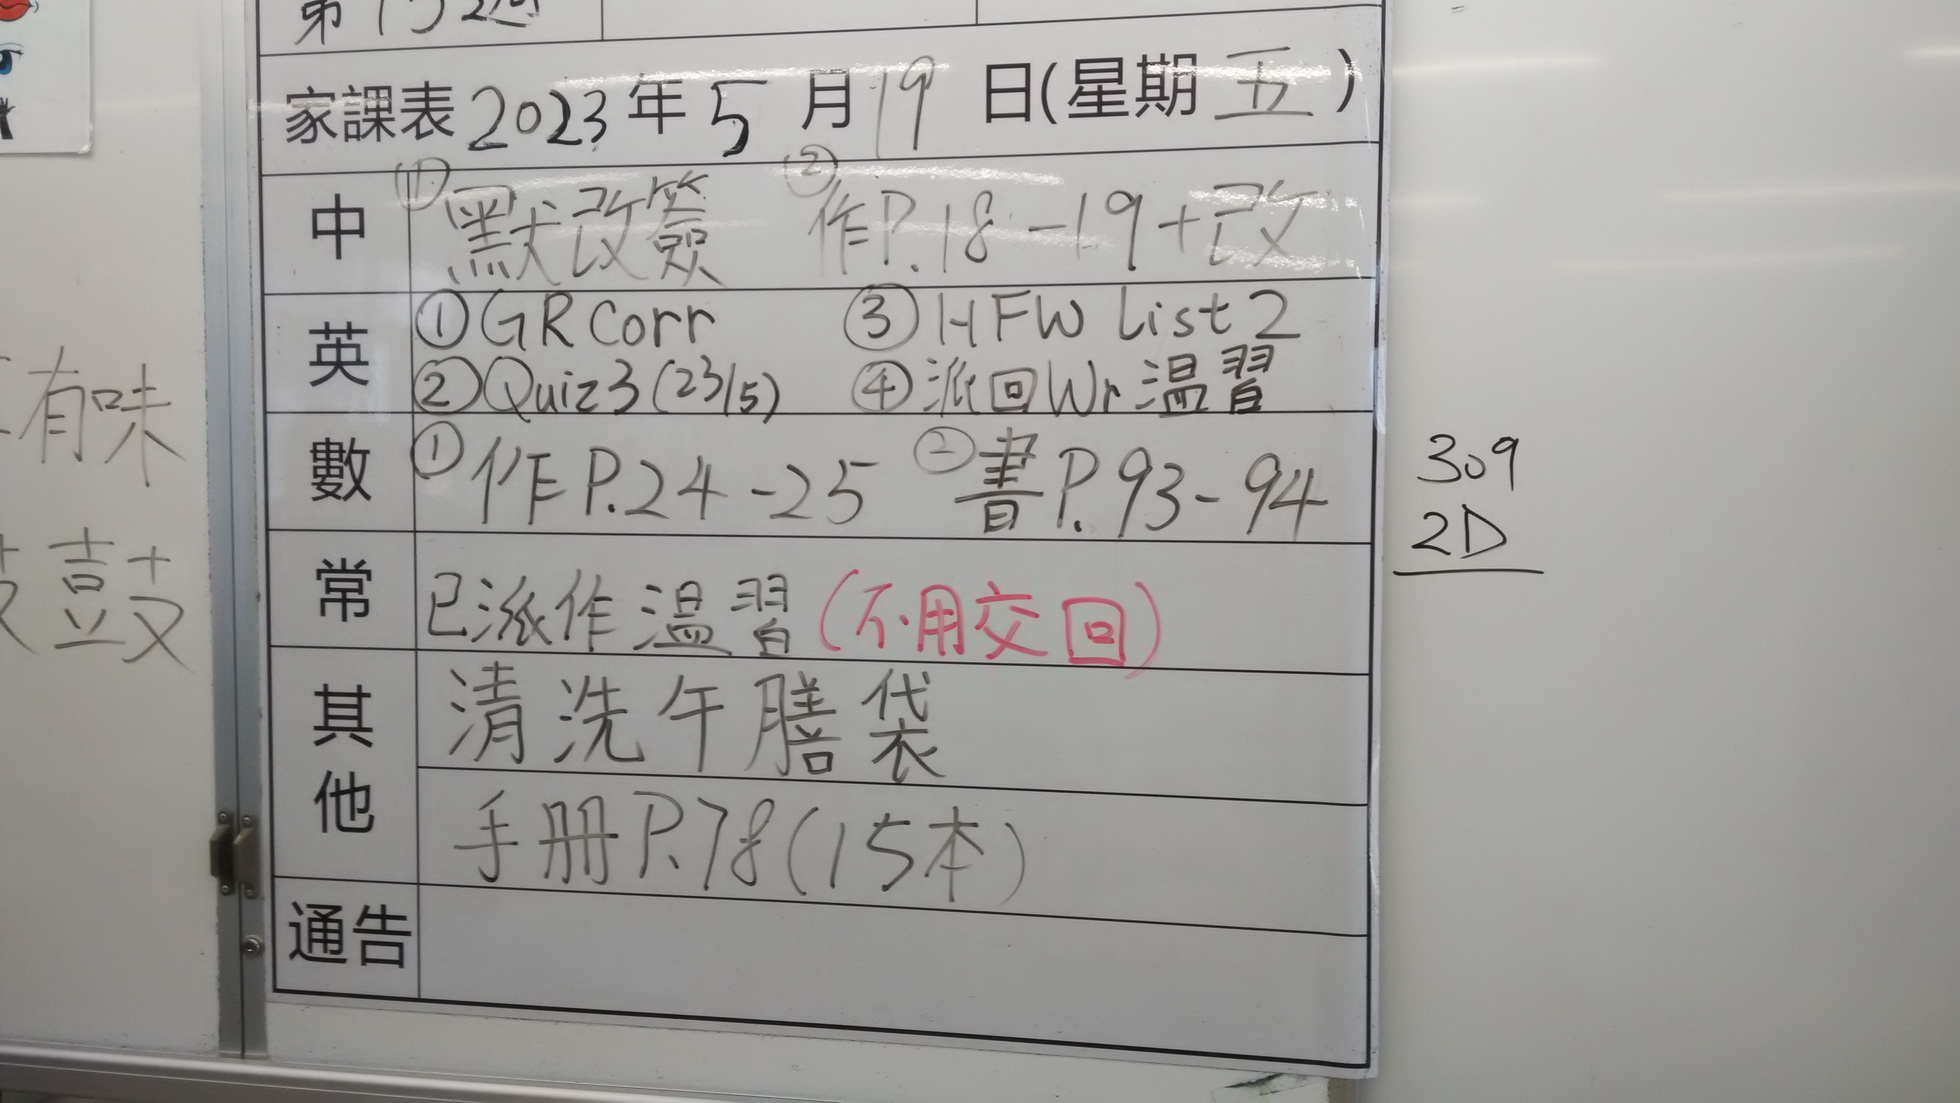 家課表 2023年5月19日(星期五)
中 ①默改簽 ②作P.18-19+改
英 ①GR Corr ③HFW List 2
②Quiz 3 (23/5) ④派回Wr溫習
數 ①作P.24-25 ②書P.93-94
常 已派作溫習(不用交回)
其他 清洗午膳袋
手冊P.78(15本)
通告
309
2D
有味
鼓